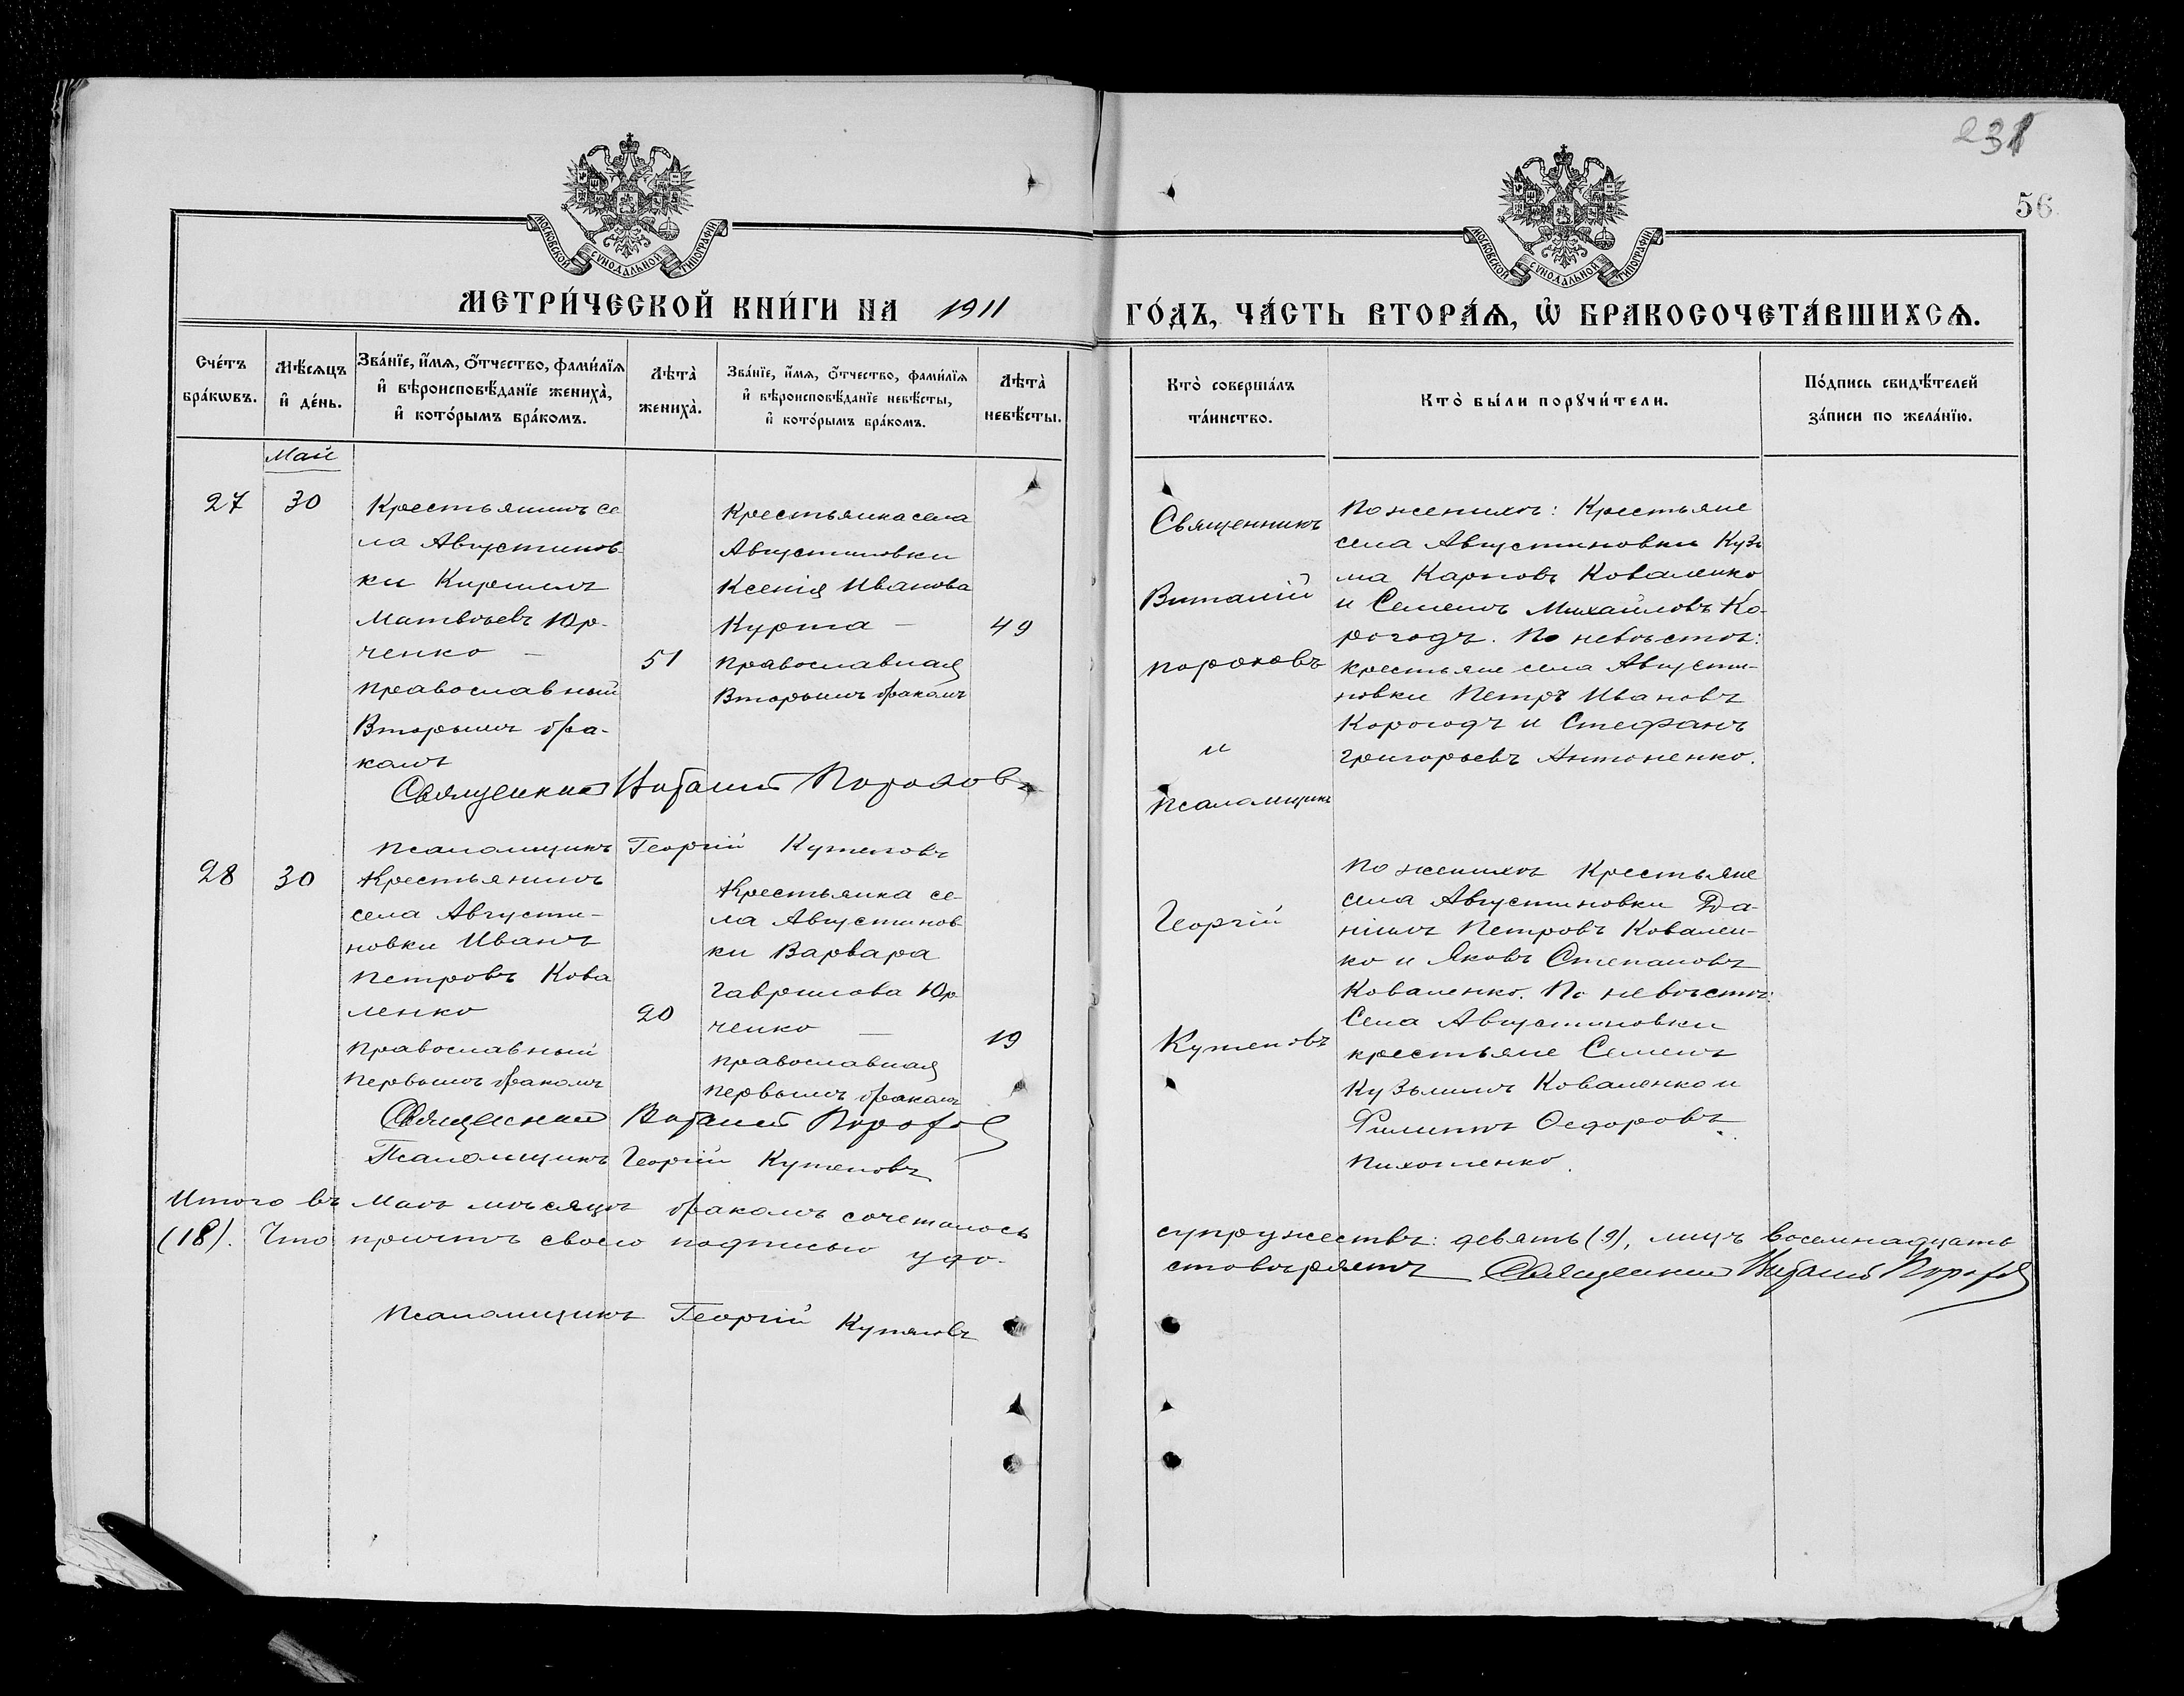 231
56
МОСКОВСКОЙ СѴНОДАЛЬНОЙ ТИПОГРАФІИ
МОСКОВСКОЙ СѴНОДАЛЬНОЙ ТИПОГРАФІИ
МЕТРИ́ЧЕСКОЙ КНИ́ГИ НА 1911
ГО́ДЪ, ЧА́СТЬ ВТОРА́Ѧ, Ѽ БРАКОСОЧЕТА́ВШИХСѦ.
Сче́тъ бра́кѡвъ.
Мѣ́сѧцъ и҆ де́нь.
Зва́нїе, и҆́мѧ, ѻ҆́тчество, фами́лїѧ
и҆ вѣроисповѣ́данїе жениха̀,
и҆ кото́рымъ бра́комъ.
Лѣта̀ жениха̀.
Зва́нїе, и҆́мѧ, ѻ҆́тчество, фами́лїѧ
и҆ вѣроисповѣ́данїе невѣ́сты,
и҆ кото́рымъ бра́комъ.
Лѣта̀ невѣ́сты.
Кто̀ соверша́лъ
та́инство.
Кто̀ бы́ли порꙋчи́тели.
По́дпись свидѣ́телей
за́писи по жела́нїю.
Май
27
30
Крестьянинъ се
ла Августинов-
ки Кириллъ
Матвѣевъ Юр-
ченко –
православный
Вторымъ бра-
комъ
51
Крестьянка села
Августиновки
Ксенія Иванова
Курта –
православная
Вторымъ бракомъ
49
Священникъ Виталій Пороховъ
Псаломщикъ Георгій Кутеповъ
Священникъ
Виталій
Пороховъ
и
Псаломщикъ
Георгій
Кутеповъ
По женихѣ: Крестьяне
села Августиновки Кузь
ма Карповъ Коваленко
и Семенъ Михайловъ Ко-
рогодъ. По невѣстѣ:
крестьяне села Августи-
новки Петръ Ивановъ
Корогодъ и Стефанъ
Григорьевъ Антоненко.
28
30
Крестьянинъ
села Августи-
новки Иванъ
Петровъ Кова
ленко
православный
Первымъ бракомъ
20
Крестьянка се-
ла Августинов-
ки Варвара
Гаврилова Юр
ченко –
православная
первымъ бракомъ
19
По женихѣ Крестьяне
села Августиновки Да-
ніилъ Петровъ Ковален-
ко и Яковъ Степановъ
Коваленко. По невѣстѣ:
Села Августиновки
крестьяне Семенъ
Кузьминъ Коваленко и
Филиппъ Ѳедоровъ
Пихотенко.
Священникъ Виталій Пороховъ
Псаломщикъ Георгій Кутеповъ
Итого въ Маѣ мѣсяцѣ бракомъ сочеталось
супружествъ: девять (9), лицъ восемнадцать
(18). Что причтъ своею подписью удо-
стовѣряетъ Священникъ Виталій Пороховъ
Псаломщикъ Георгій Кутеповъ